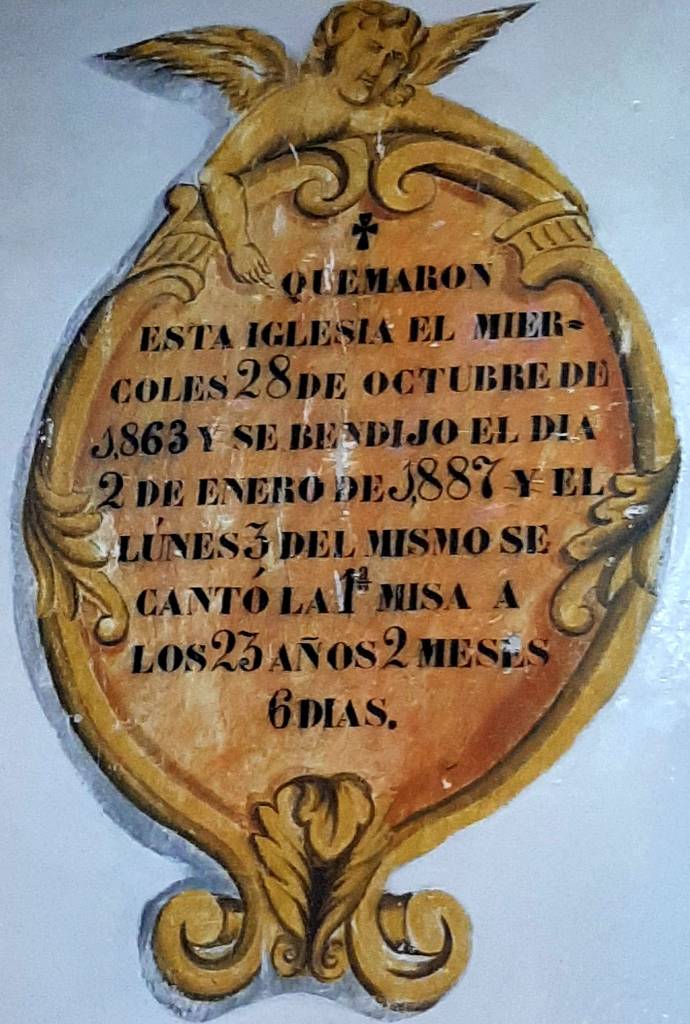 ✝
QUEMARON
ESTA IGLESIA EL MIER=
COLES 28 DE OCTUBRE DE
1,863 Y SE BENDIJO EL DIA
2 DE ENERO DE 1,887 Y EL
LÚNES 3 DEL MISMO SE
CANTÓ LA 1ª MISA A
LOS 23 AÑOS 2 MESES
6 DIAS.